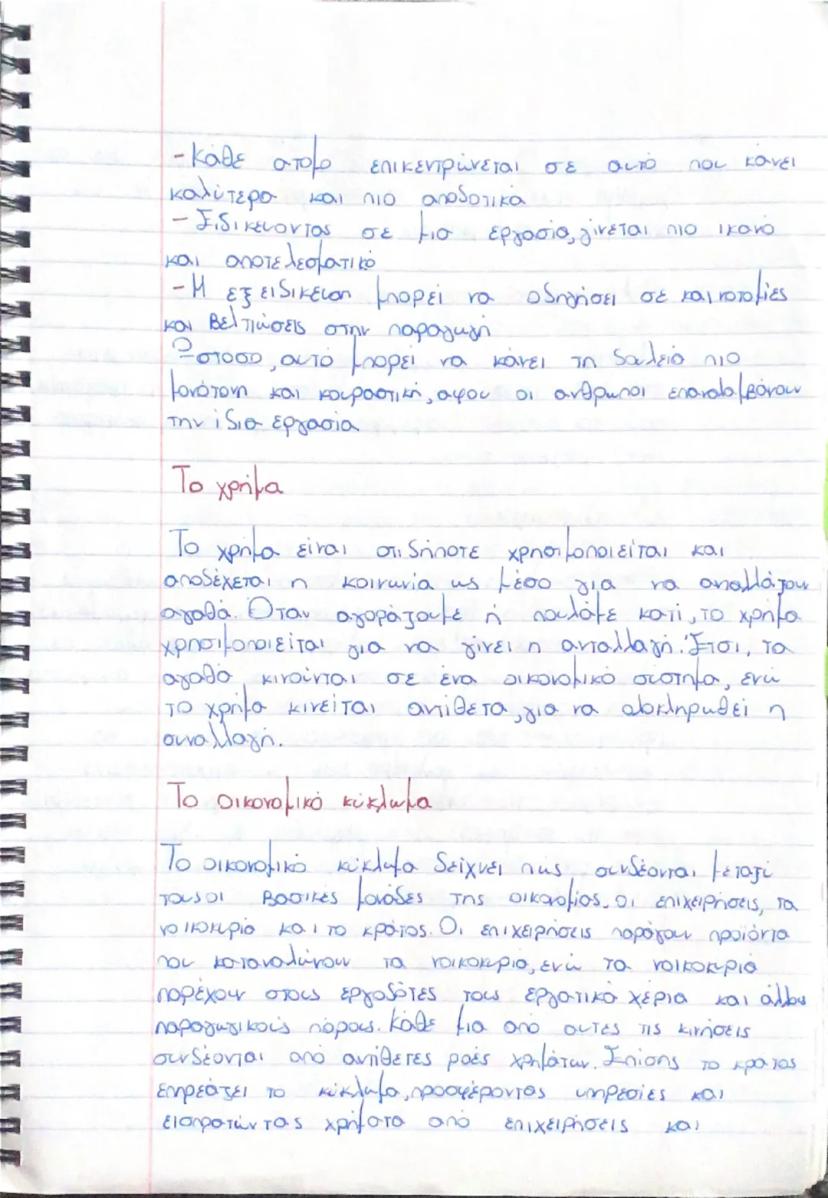 - Κάθε ατομο επικεντρώνεται σε αυτό που κάνει
καλύτερα και πιο αποδοτικά
- Ειδικευοντας σε μια εργασία, γίνεται πιο ικανό
και αποτελεσματικό
- Η εξειδικευση μπορεί να οδηγήσει σε καινοτομίες
και βελτιώσεις στην παραγωγή
Ωστοσο, αυτό μπορεί να κάνει τη δουλειά πιο
μονότονη και κουραστική, αφου οι ανθρωποι επαναλαμβάνουν
την ίδια εργασία
Το χρήμα
Το χρήμα είναι οτιδήποτε χρησιμοποιείται και
αποδέχεται η κοινωνία ως μέσο για να ανταλλάζουν
αγαθά. Όταν αγοράζουμε ή πουλάμε κατι, το χρήμα
χρησιμοποιείται για να γίνει η ανταλλαγή. Έτσι, τα
αγαθά κινούνται σε ένα οικονομικό σύστημα, ενώ
το χρήμα κινείται αντίθετα, για να ολοκληρωθεί η
συναλλαγή.
Το οικονομικό κύκλωμα
Το οικονομικό κύκλωμα δείχνει πώς συνδέονται μεταξύ
τους οι βασικές μονάδες της οικονομίας. οι επιχειρήσεις, τα
νοικοκυριά και το κράτος. Οι επιχειρήσεις παράγουν προϊόντα
που καταναλώνουν τα νοικοκυριά, ενώ τα νοικοκυριά
παρέχουν στους εργοδότες τους εργατικά χέρια και άλλους
παραγωγικούς πόρους. Κάθε μια από αυτες τις κινήσεις
συνδέονται από αντίθετες ροές χρημάτων. Επίσης το κρατος
επηρεάζει το κύκλωμα, προσφέροντας υπηρεσίες και
εισπρατώντας χρήματα από επιχειρήσεις και